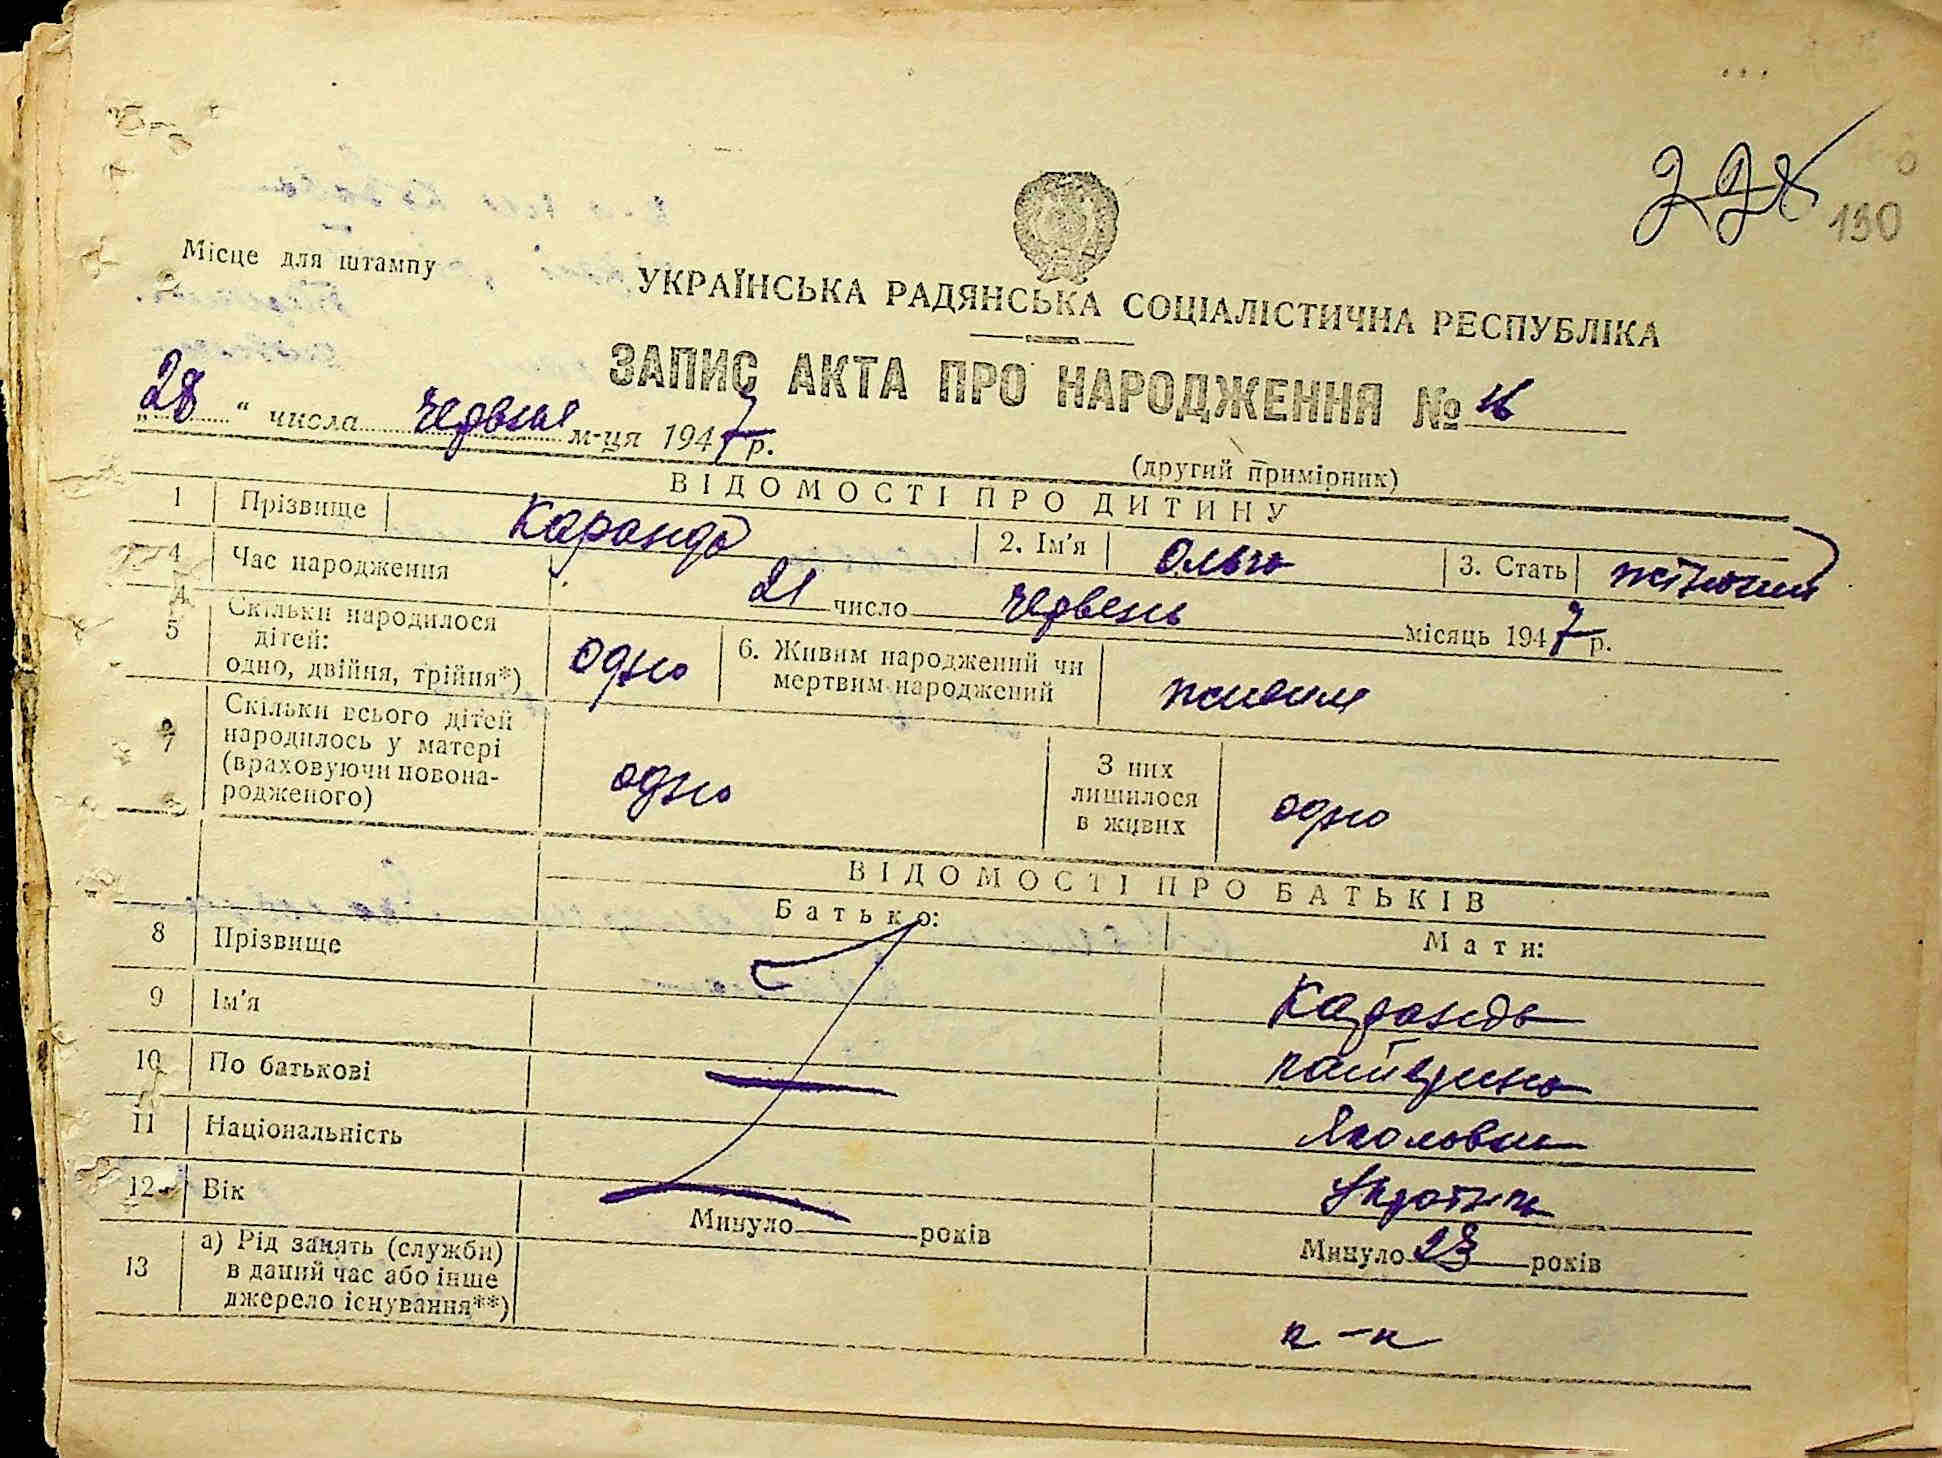 190
Місце для штампу
УКРАЇНСЬКА РАДЯНСЬКА СОЦІАЛІСТИЧНА РЕСПУБЛІКА
ЗАПИС АКТА ПРО НАРОДЖЕННЯ № 16
„28“ числа червня м-ця 1947 р.
(другий примірник)
ВІДОМОСТІ ПРО ДИТИНУ
1 Прізвище Каранда 2. Ім'я Ольга 3. Стать жіночий
4 Час народження 21 число червень місяць 1947 р.
5 Скільки народилося дітей: одно, двійня, трійня*) одно 6. Живим народжений чи мертвим народжений живим
7 Скільки всього дітей народилось у матері (враховуючи новонародженого) одно З них лишилося в живих одно
ВІДОМОСТІ ПРО БАТЬКІВ
Батько: Мати:
8 Прізвище Каранда
9 Ім'я Катерина
10 По батькові Якововна
11 Національність Українка
12 Вік Минуло років Минуло 23 років
13 а) Рід занять (служби) в даний час або інше джерело існування**) к-к